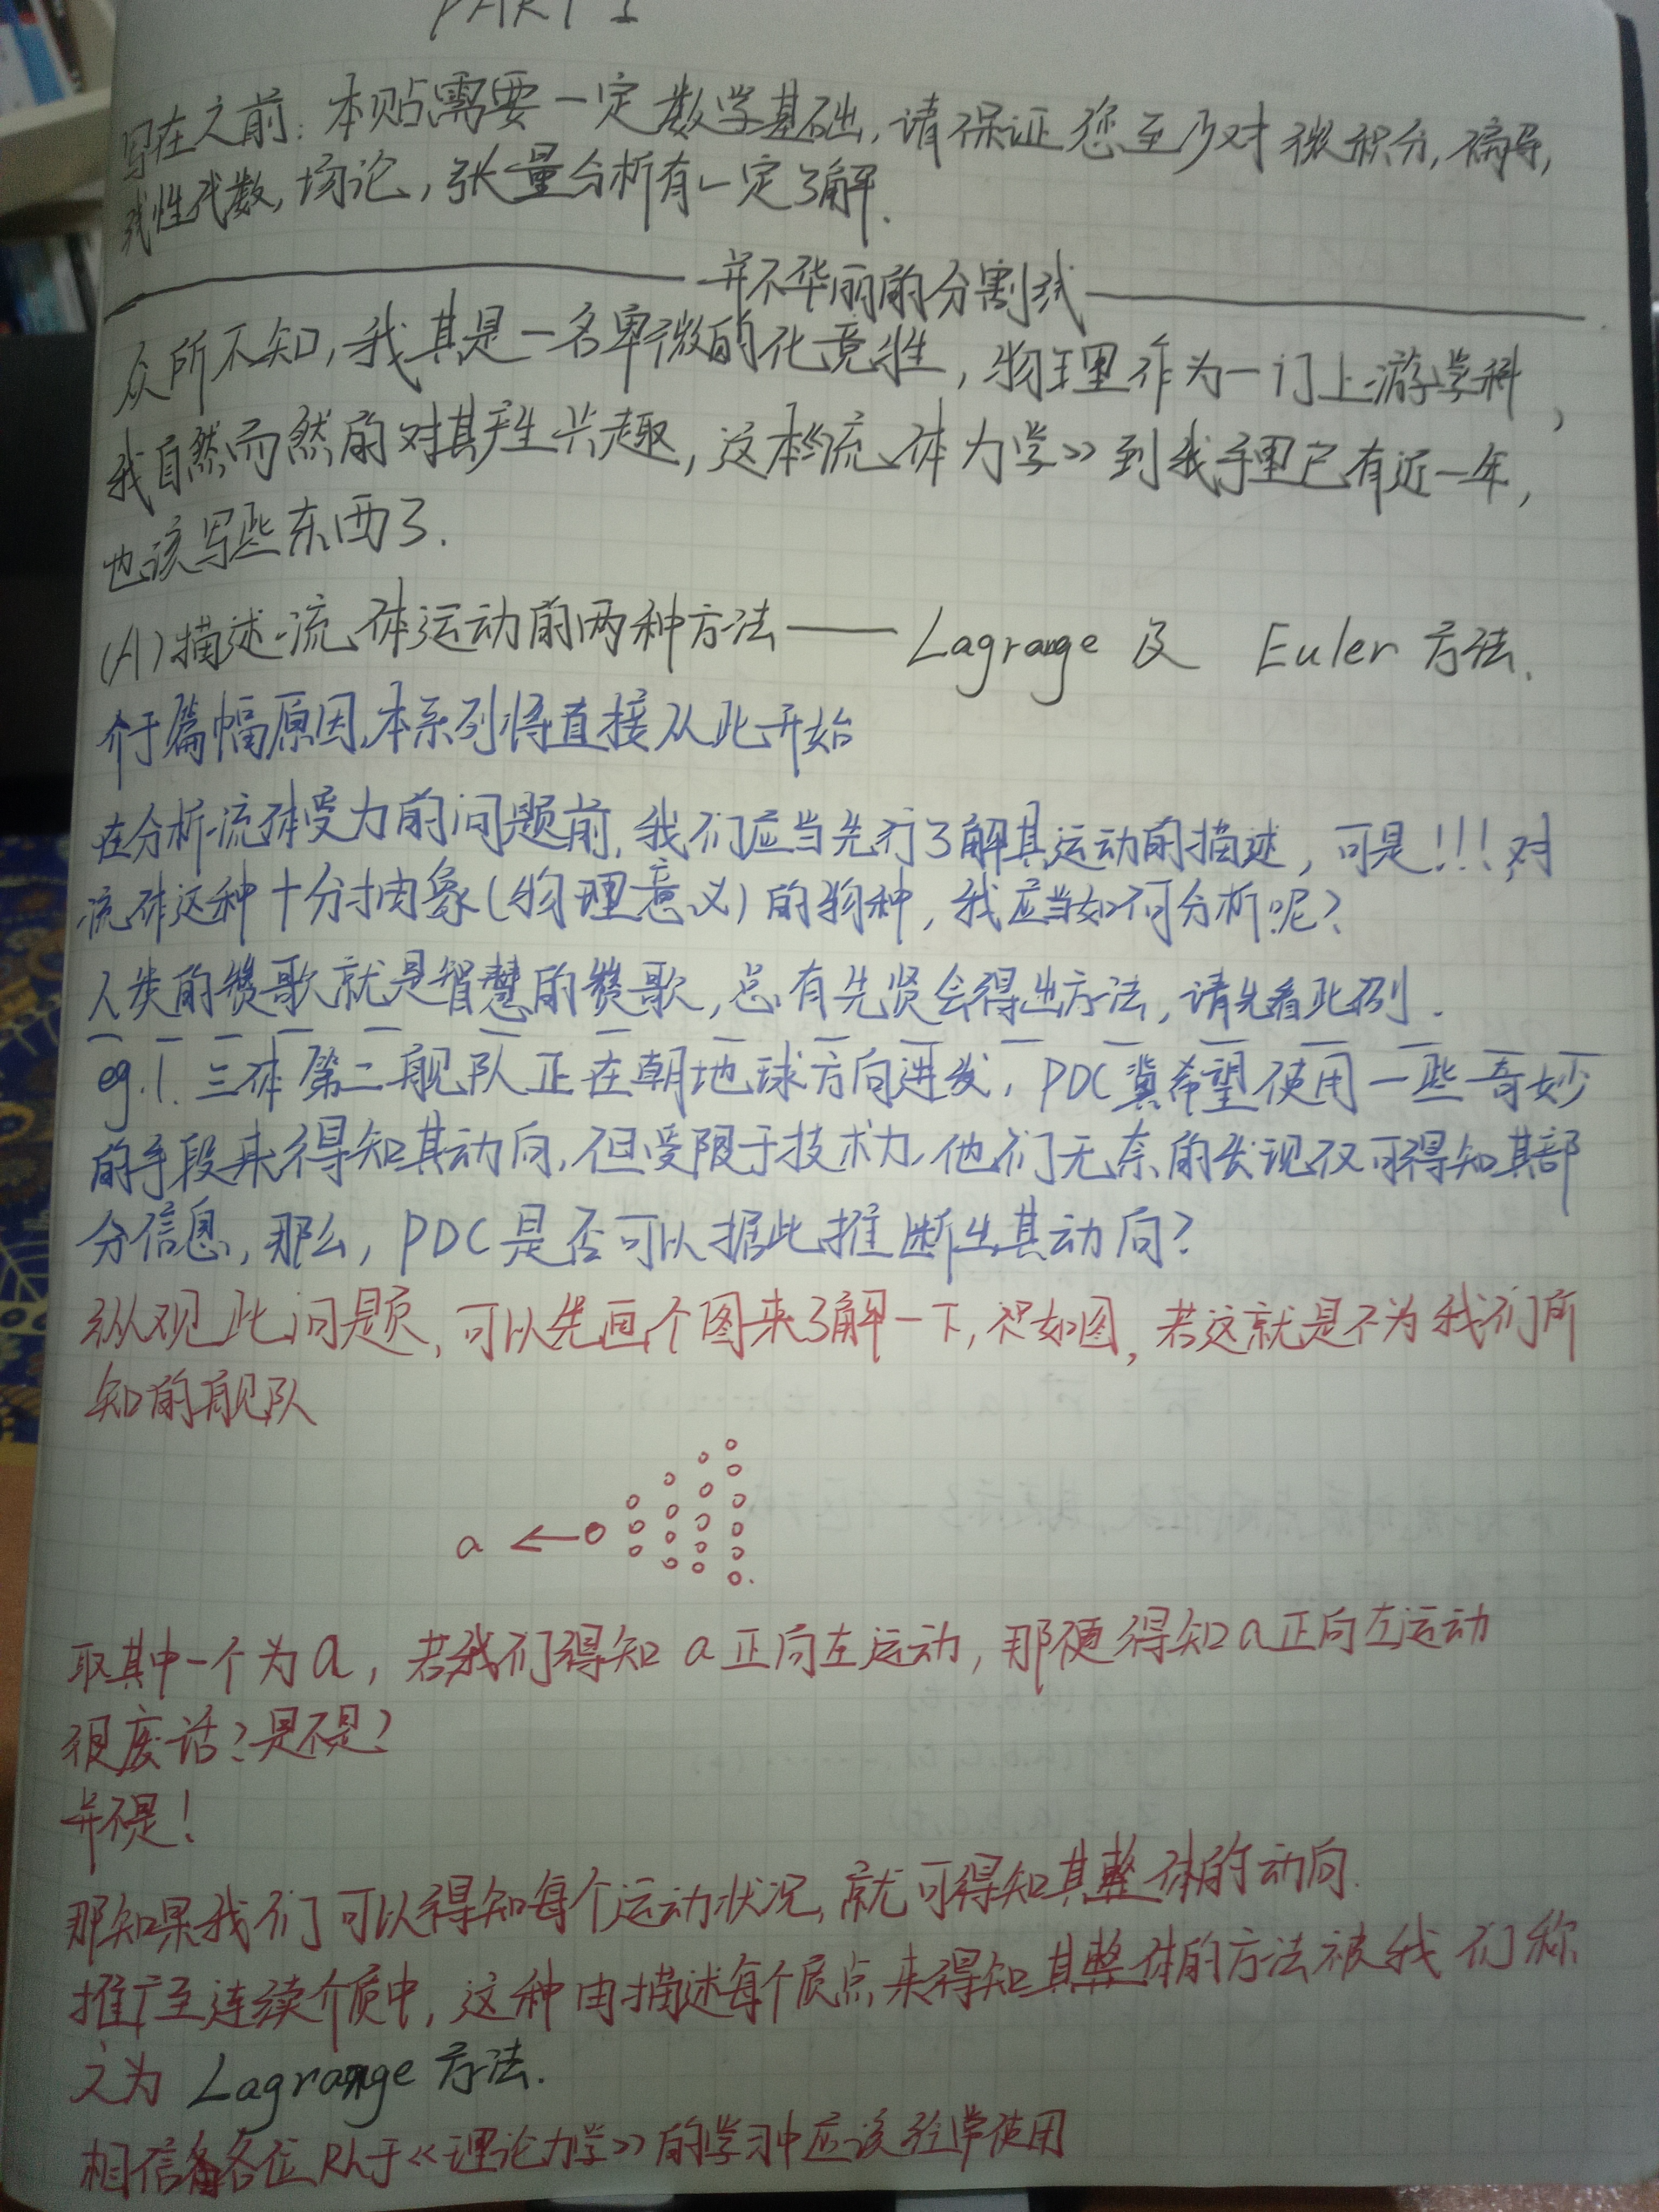 PART 1
写在之前：本贴需要一定数学基础，请保证您至少对微积分，偏导，
线性代数，场论，张量分析有一定了解.
并不华丽的分割线
众所不知，我其是一名卑微的化竞牲，物理作为一门上游学科，
我自然而然的对其产生兴趣，这本《流体力学》到我手里已有近一年，
也该写些东西了.
(A)描述流体运动的两种方法—— Lagrange 及 Euler 方法.
介于篇幅原因，本系列将直接从此开始
在分析流体受力的问题前，我们应当先行了解其运动的描述，可是！！！对
流体这种十分抽象(物理意义)的物种，我应当如何分析呢？
人类的赞歌就是智慧的赞歌，总有先贤会得出方法，请先看此例.
eg.1. 三体第二舰队正在朝地球方向进发，PDC冀希望使用一些奇妙
的手段来得知其动向，但受限于技术力，他们无奈的发现仅可得知其部
分信息，那么，PDC是否可以据此推断出其动向？
纵观此问题，可以先画个图来了解一下，如图，若这就是不为我们所
知的舰队
a
取其中一个为a，若我们得知 a正向左运动，那便得知a正向左运动
很废话？是不是？
并不是！
那如果我们可以得知每个运动状况，就可得知其整体的动向.
推广至连续介质中，这种由描述每个质点来得知其整体的方法被我们称
之为 Lagrange 方法.
相信各位于《理论力学》的学习中应该经常使用